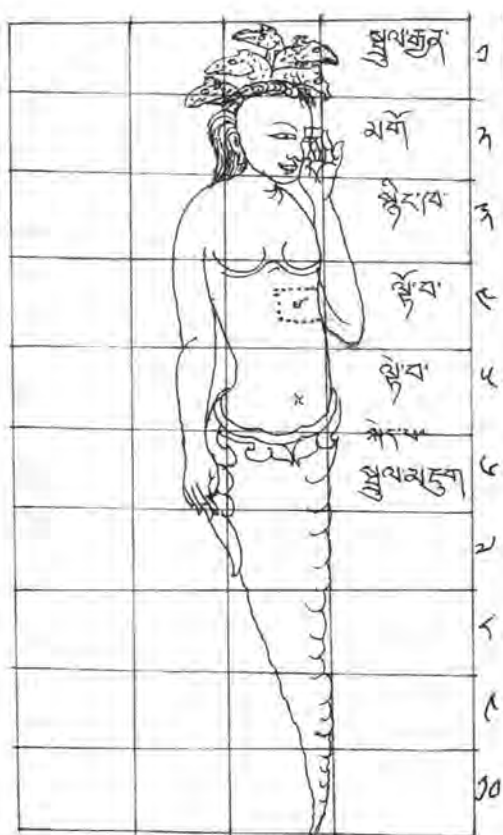 སྦྲུལ་རྒྱན་ ༡
མགོ ༢
སྙིང་ཁ་ ༣
ལྟོ་བ་ ༤
ལྟེ་བ་ ༥
སྐེད་པ་
སྦྲུལ་མཇུག ༦
༧
༨
༩
༡༠